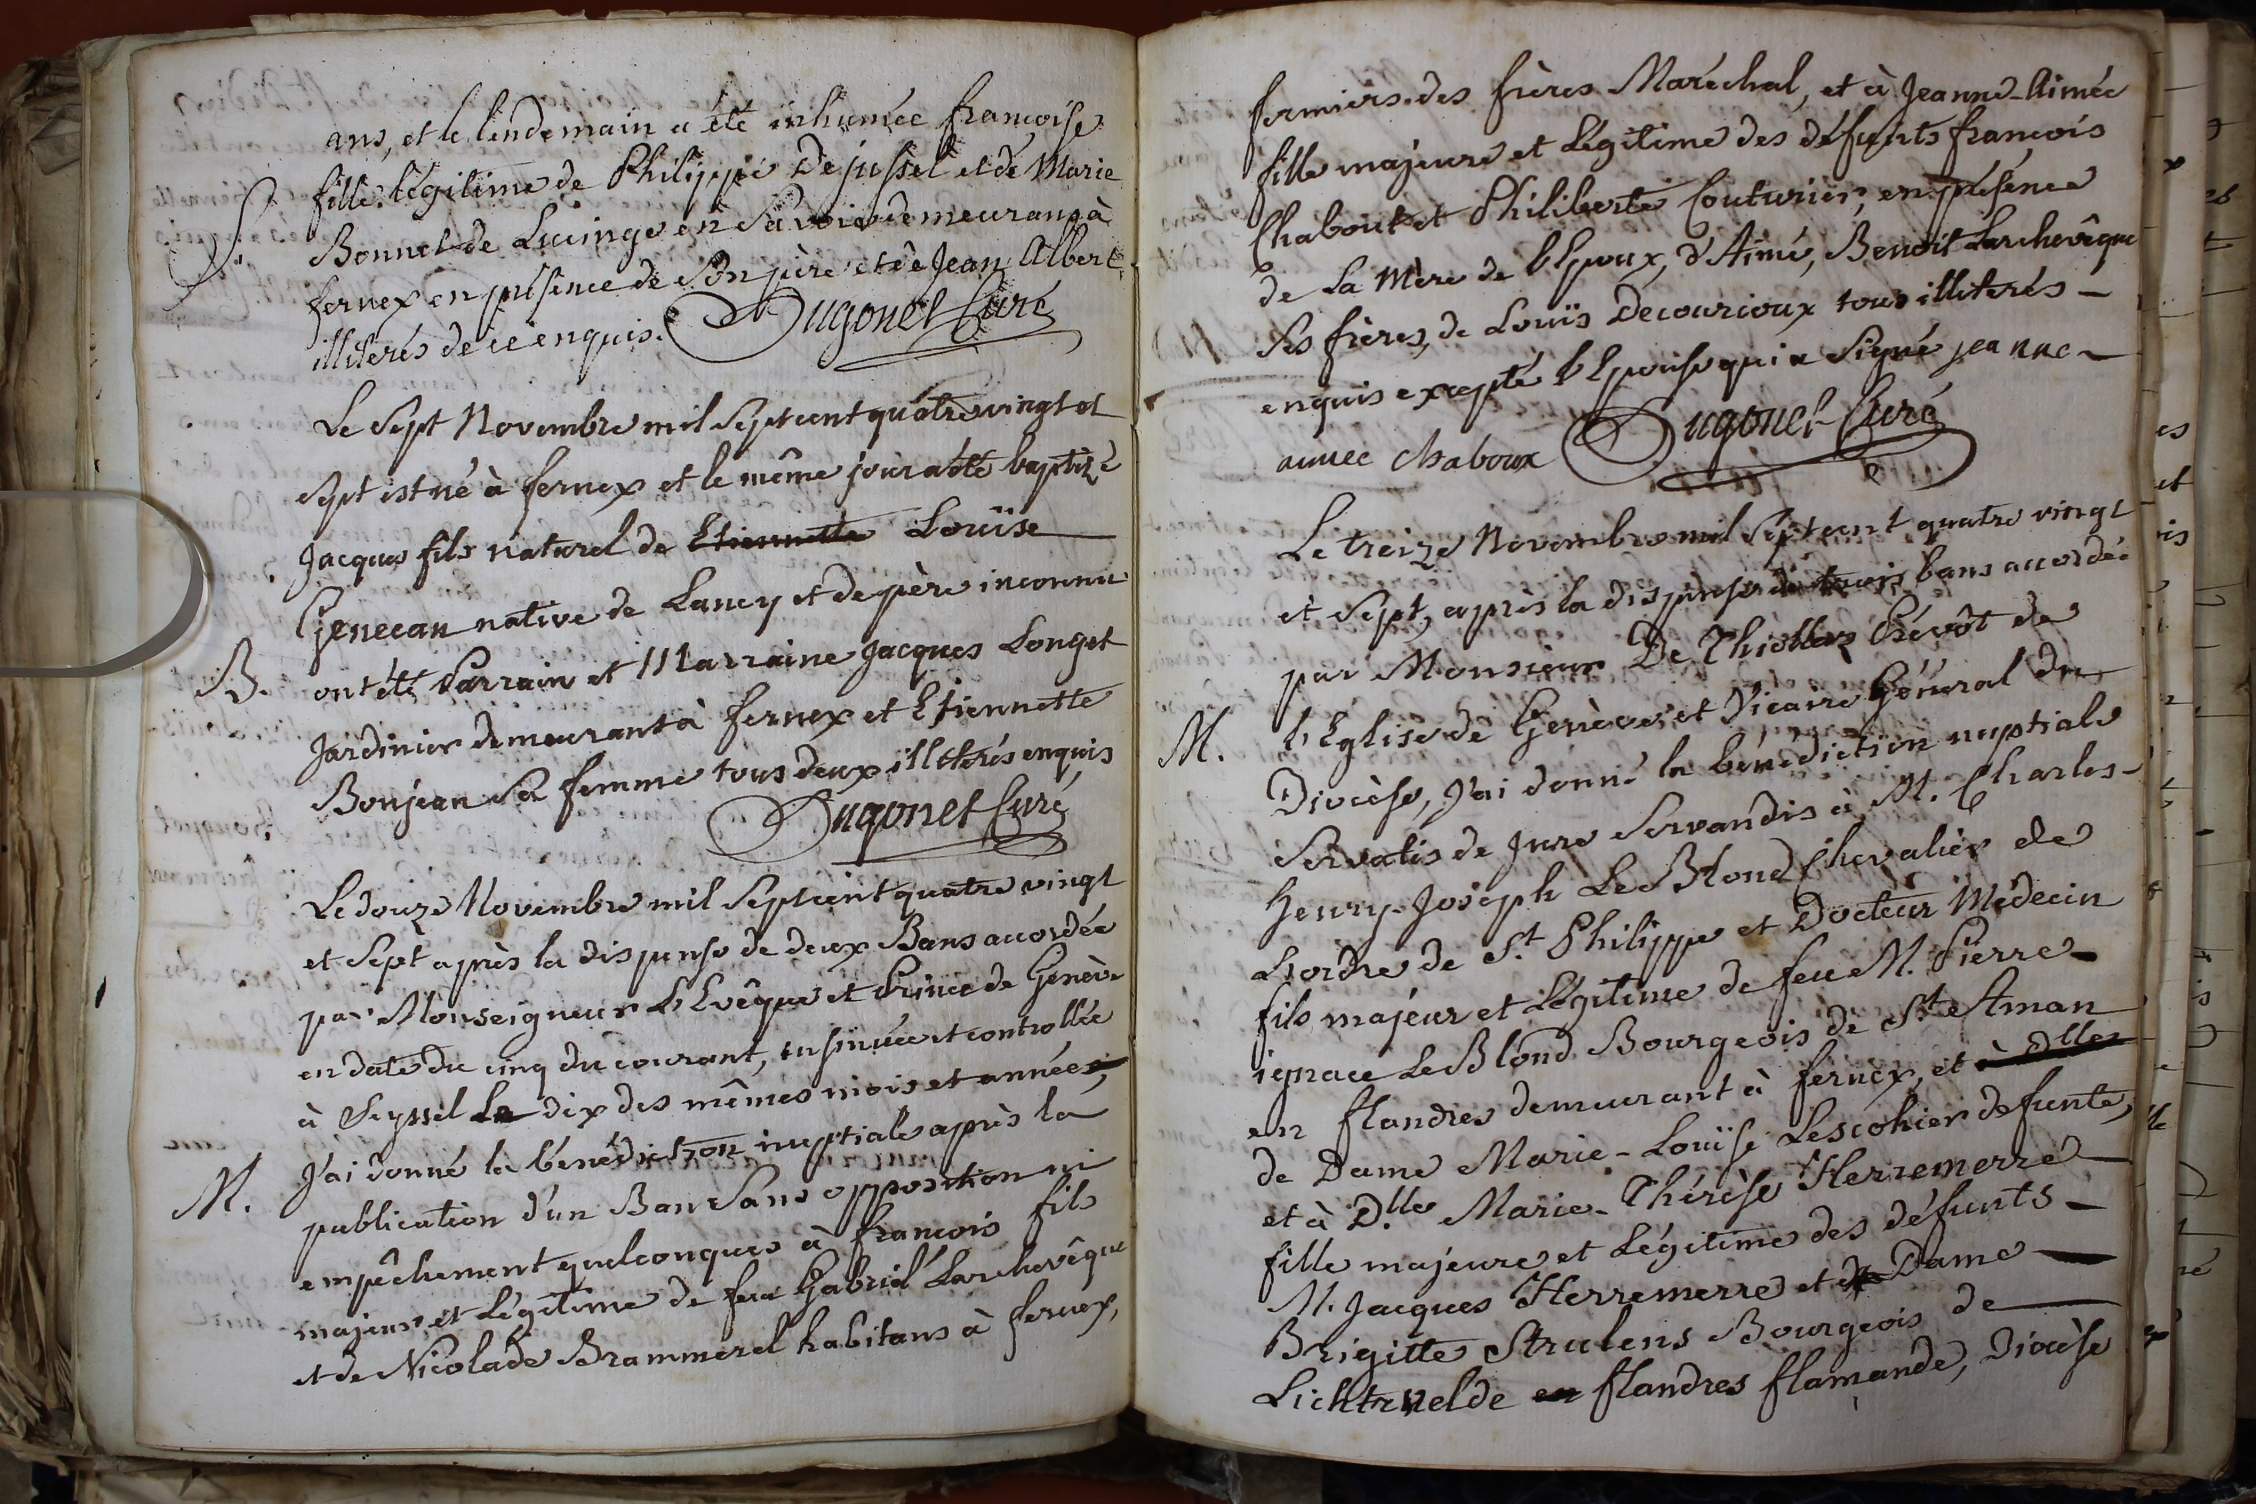 ans, et le lendemain a été inhumée françoise
fille légitime de Philippe Dejussel et de Marie
S.
Bonnet de Lucinge en Savoie demeurans à
fernex en présence de Son père et de Jean Albert
illiterés de ce enquis. Dugonet Curé
Le Sept Novembre mil Sept cent quatre vingt et
Sept est né à fernex et le même jour a été baptizé
Jacques fils naturel de Etiennette Louïse
Genecan native de Lancy et de père inconnu
B.
ont été Parrain et Marraine Jacques Longet
Jardinier demeurant à fernex et Etiennette
Bonjean Sa femme tous deux illiterés enquis
Dugonet Curé
Le douze Novembre mil Sept cent quatre vingt
et Sept après la dispense de deux Bans accordée
par Monseigneur L'Evêque et Prince de Genève
en date du cinq du courant, insinuée et controllée
à Seyssel Le dix des mêmes mois et année,
J'ai donné la bénédiction nuptiale après la
M.
publication d'un Ban Sans opposition ni
empêchement quelconques à françois fils
majeur et Légitime de feu Gabriel Larchevêque
et de Nicolade Brammerel habitans à fernex,
fermiers des frères Maréchal, et à Jeanne-Aimée
fille majeure et Légitime des défunts françois
Chaboud et Philiberte Couturier; en présence
de La Mère de l'Epoux, d'Aimé, Benoit Larchevêque
Ses frères, de Louïs Decourioux tous illiterés
enquis excepté l'Epouse qui a Signé jeanne
aimee chaboux Dugonet Curé
Le treize Novembre mil Sept cent quatre vingt
et Sept, après la dispense de trois bans accordée
par Monsieur De Thiollaz Prévôt de
l'Eglise de Genève et Vicaire Général du
M.
Diocèse, J'ai donné la bénédiction nuptiale
Servatis de Jure Servandis à M. Charles-
Henry-Joseph Le Blond Chevalier de
L'ordre de St. Philippe et Docteur Médecin
fils majeur et Légitime de feu M. Pierre-
ignace Le Blond Bourgeois de St. Aman
en flandres demeurant à fernex, et à Dlle
de Dame Marie-Louïse Lescohier defunte,
et à D.lle Marie-Thérèse Herremerre
fille majeure et Légitime des défunts
M. Jacques Herremerre et de Dame
Brigitte Strulens Bourgeois de
Lichtrvelde en flandres flamande, Diocèse